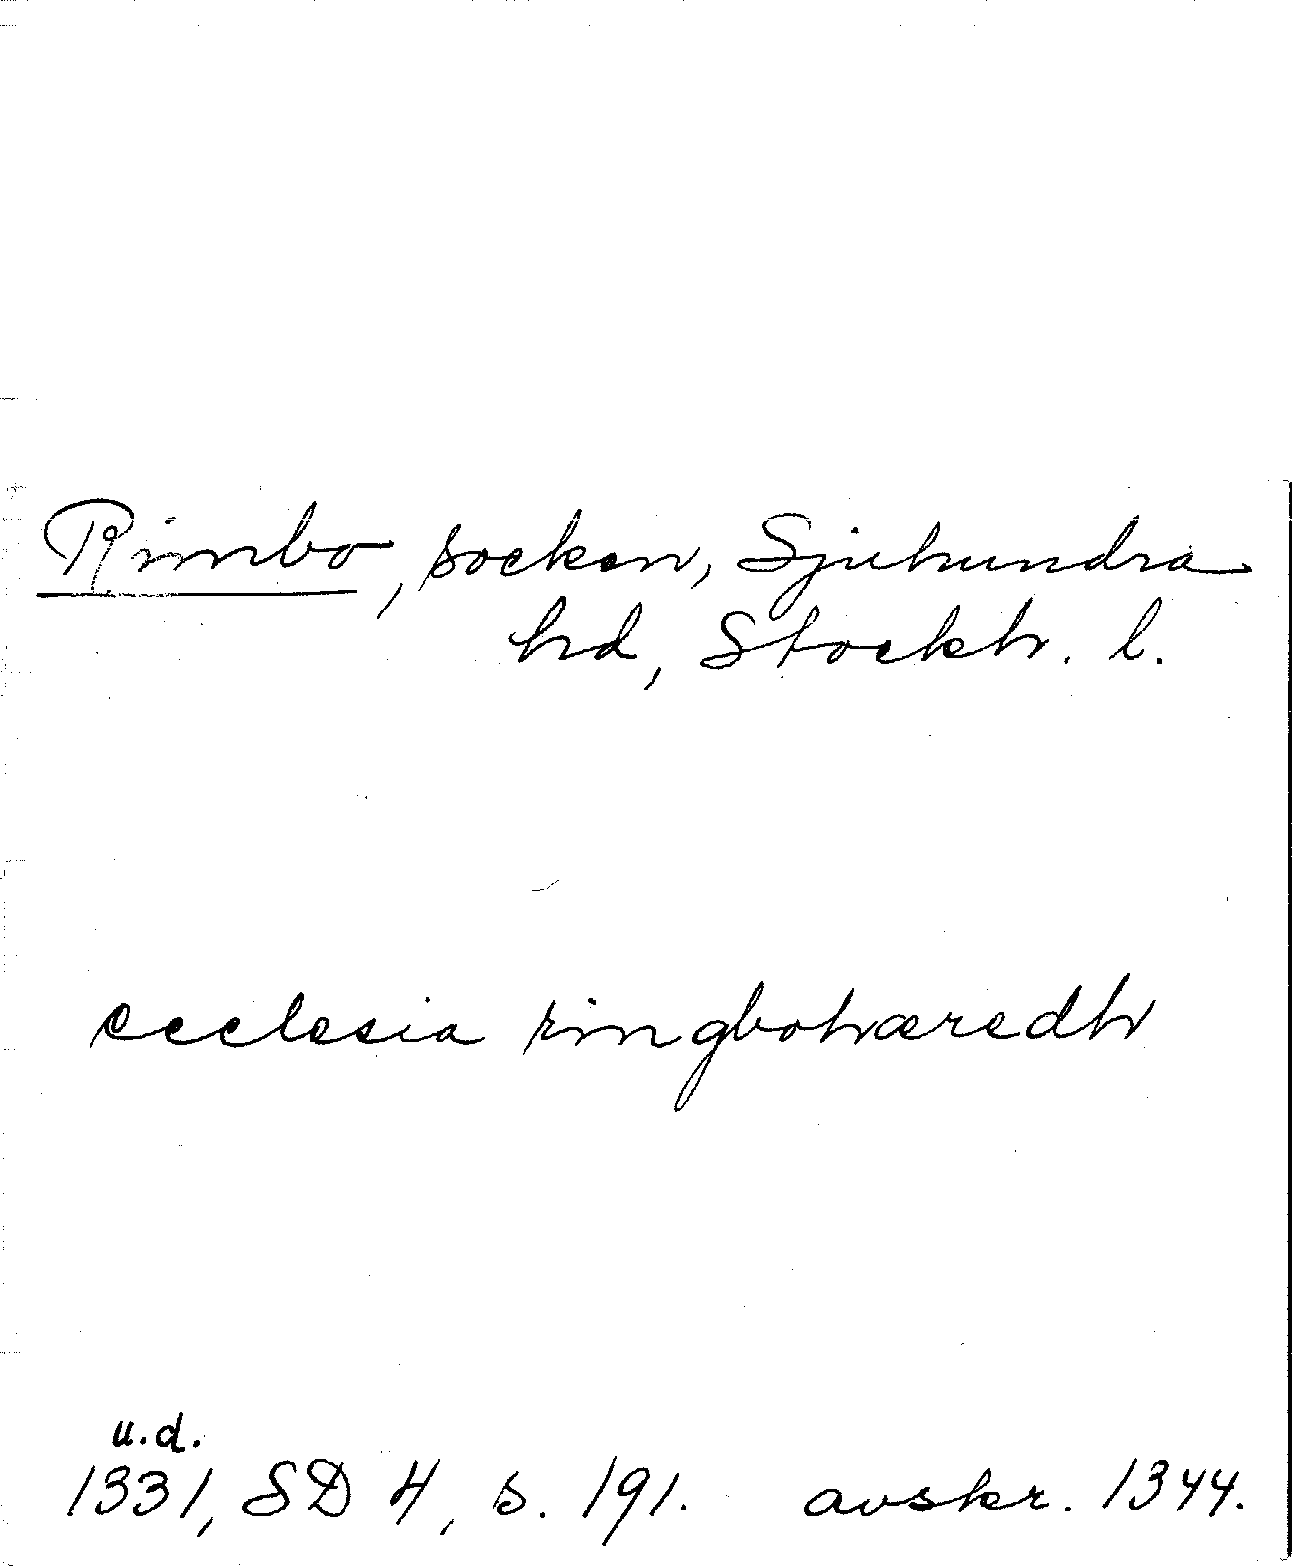 Rimbo, socken, Sjuhundra
hd, Stockh. l.
ecclesia ringbohæredh
u.d.
1331, SD 4, s. 191. avskr. 1344.